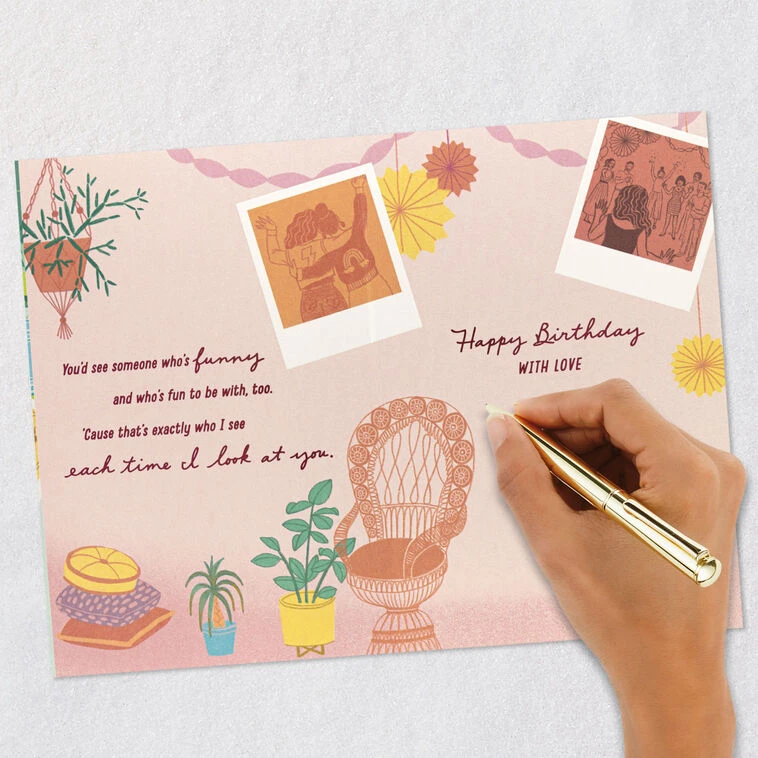 You'd see someone who's funny
and who's fun to be with, too.
'Cause that's exactly who I see
each time I look at you.
Happy Birthday
WITH LOVE